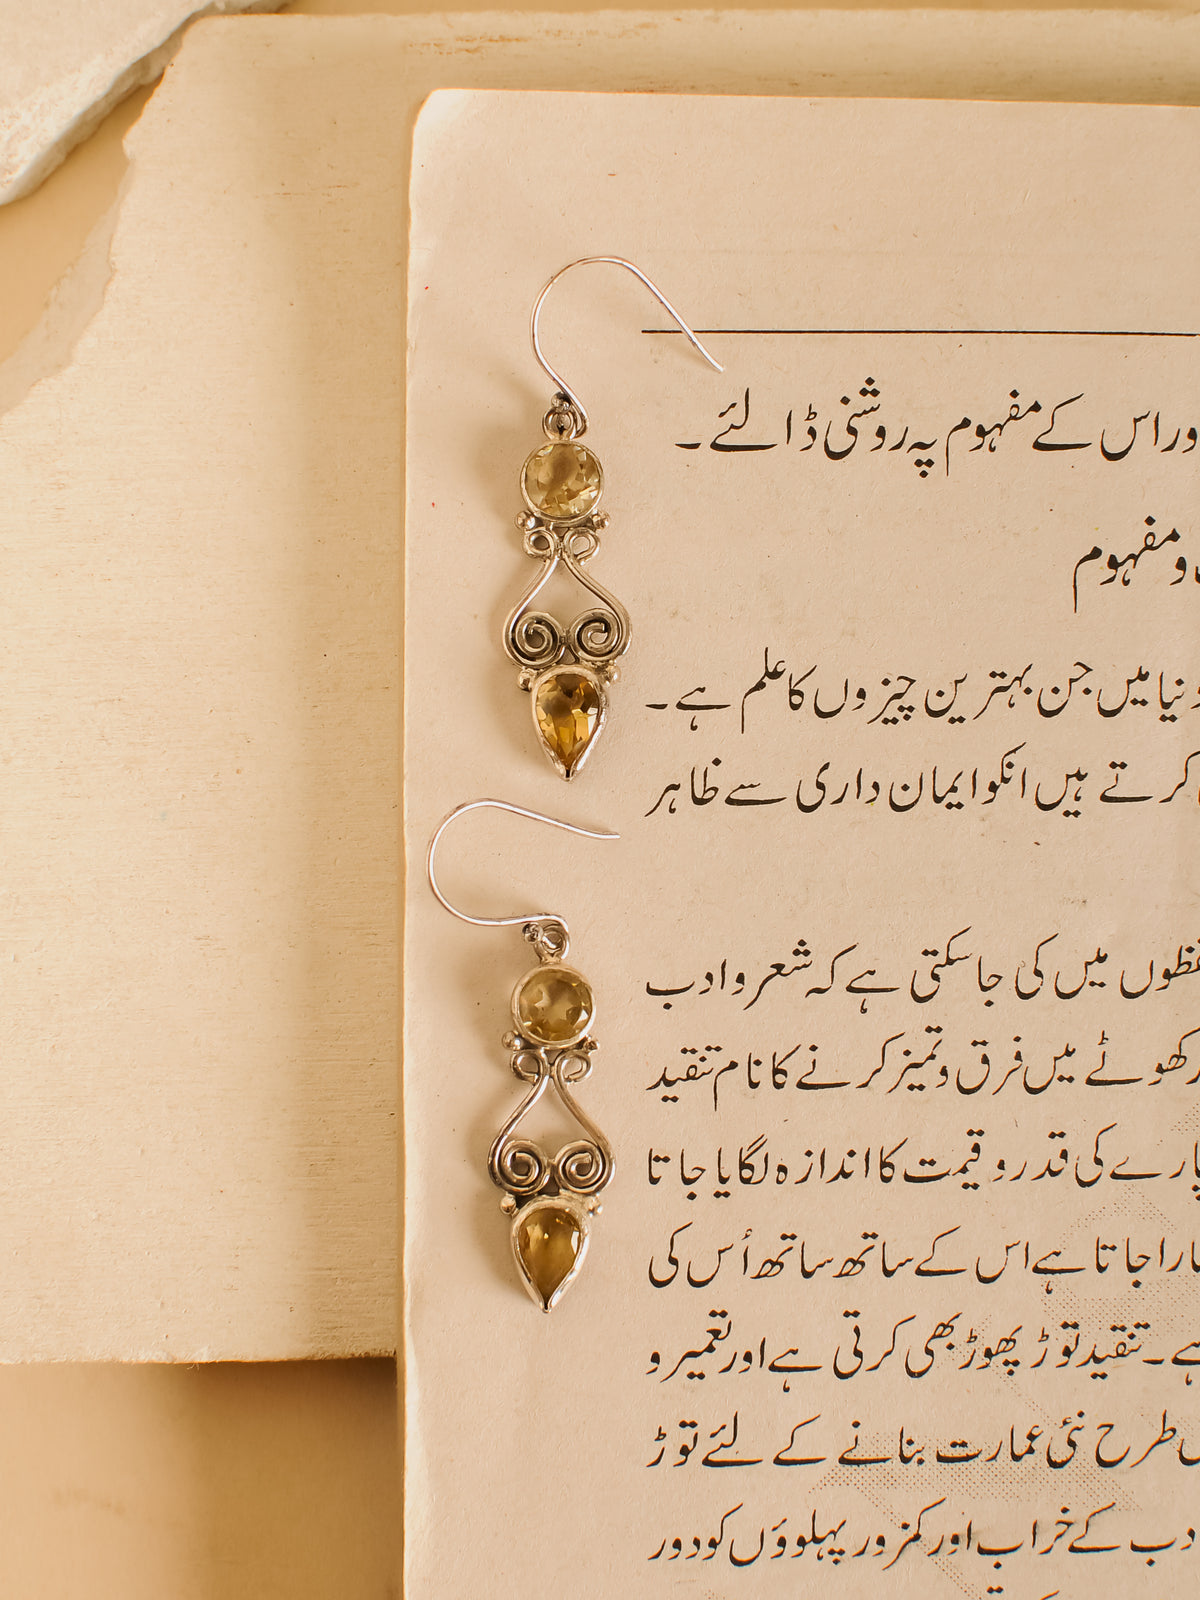 ور اس کے مفہوم پہ روشنی ڈالئے ۔
و مفہوم
نیا میں جن بہترین چیزوں کا علم ہے ۔
کرتے ہیں انکو ایمان داری سے ظاہر
فظوں میں کی جا سکتی ہے کہ شعر و ادب
رکھوٹے میں فرق و تمیز کرنے کا نام تنقید
پارے کی قدر و قیمت کا اندازہ لگایا جاتا
ارا جاتا ہے اس کے ساتھ ساتھ اُس کی
ہے ۔ تنقید توڑ پھوڑ بھی کرتی ہے اور تعمیر و
طرح نئی عمارت بنانے کے لئے توڑ
دب کے خراب اور کمزور پہلوؤں کو دور